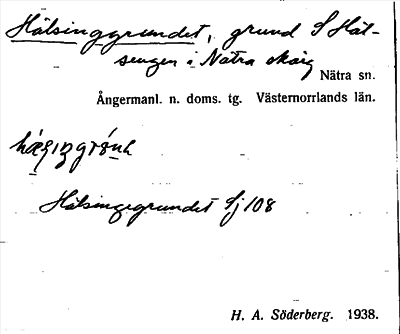 Hälsinggrundet, grund S Häl-
sengen i Nätra skärg
Nätra sn.
Ångermanl. n. doms. tg. Västernorrlands län.
Hälsinggrundet Sj 108
H. A. Söderberg. 1938.